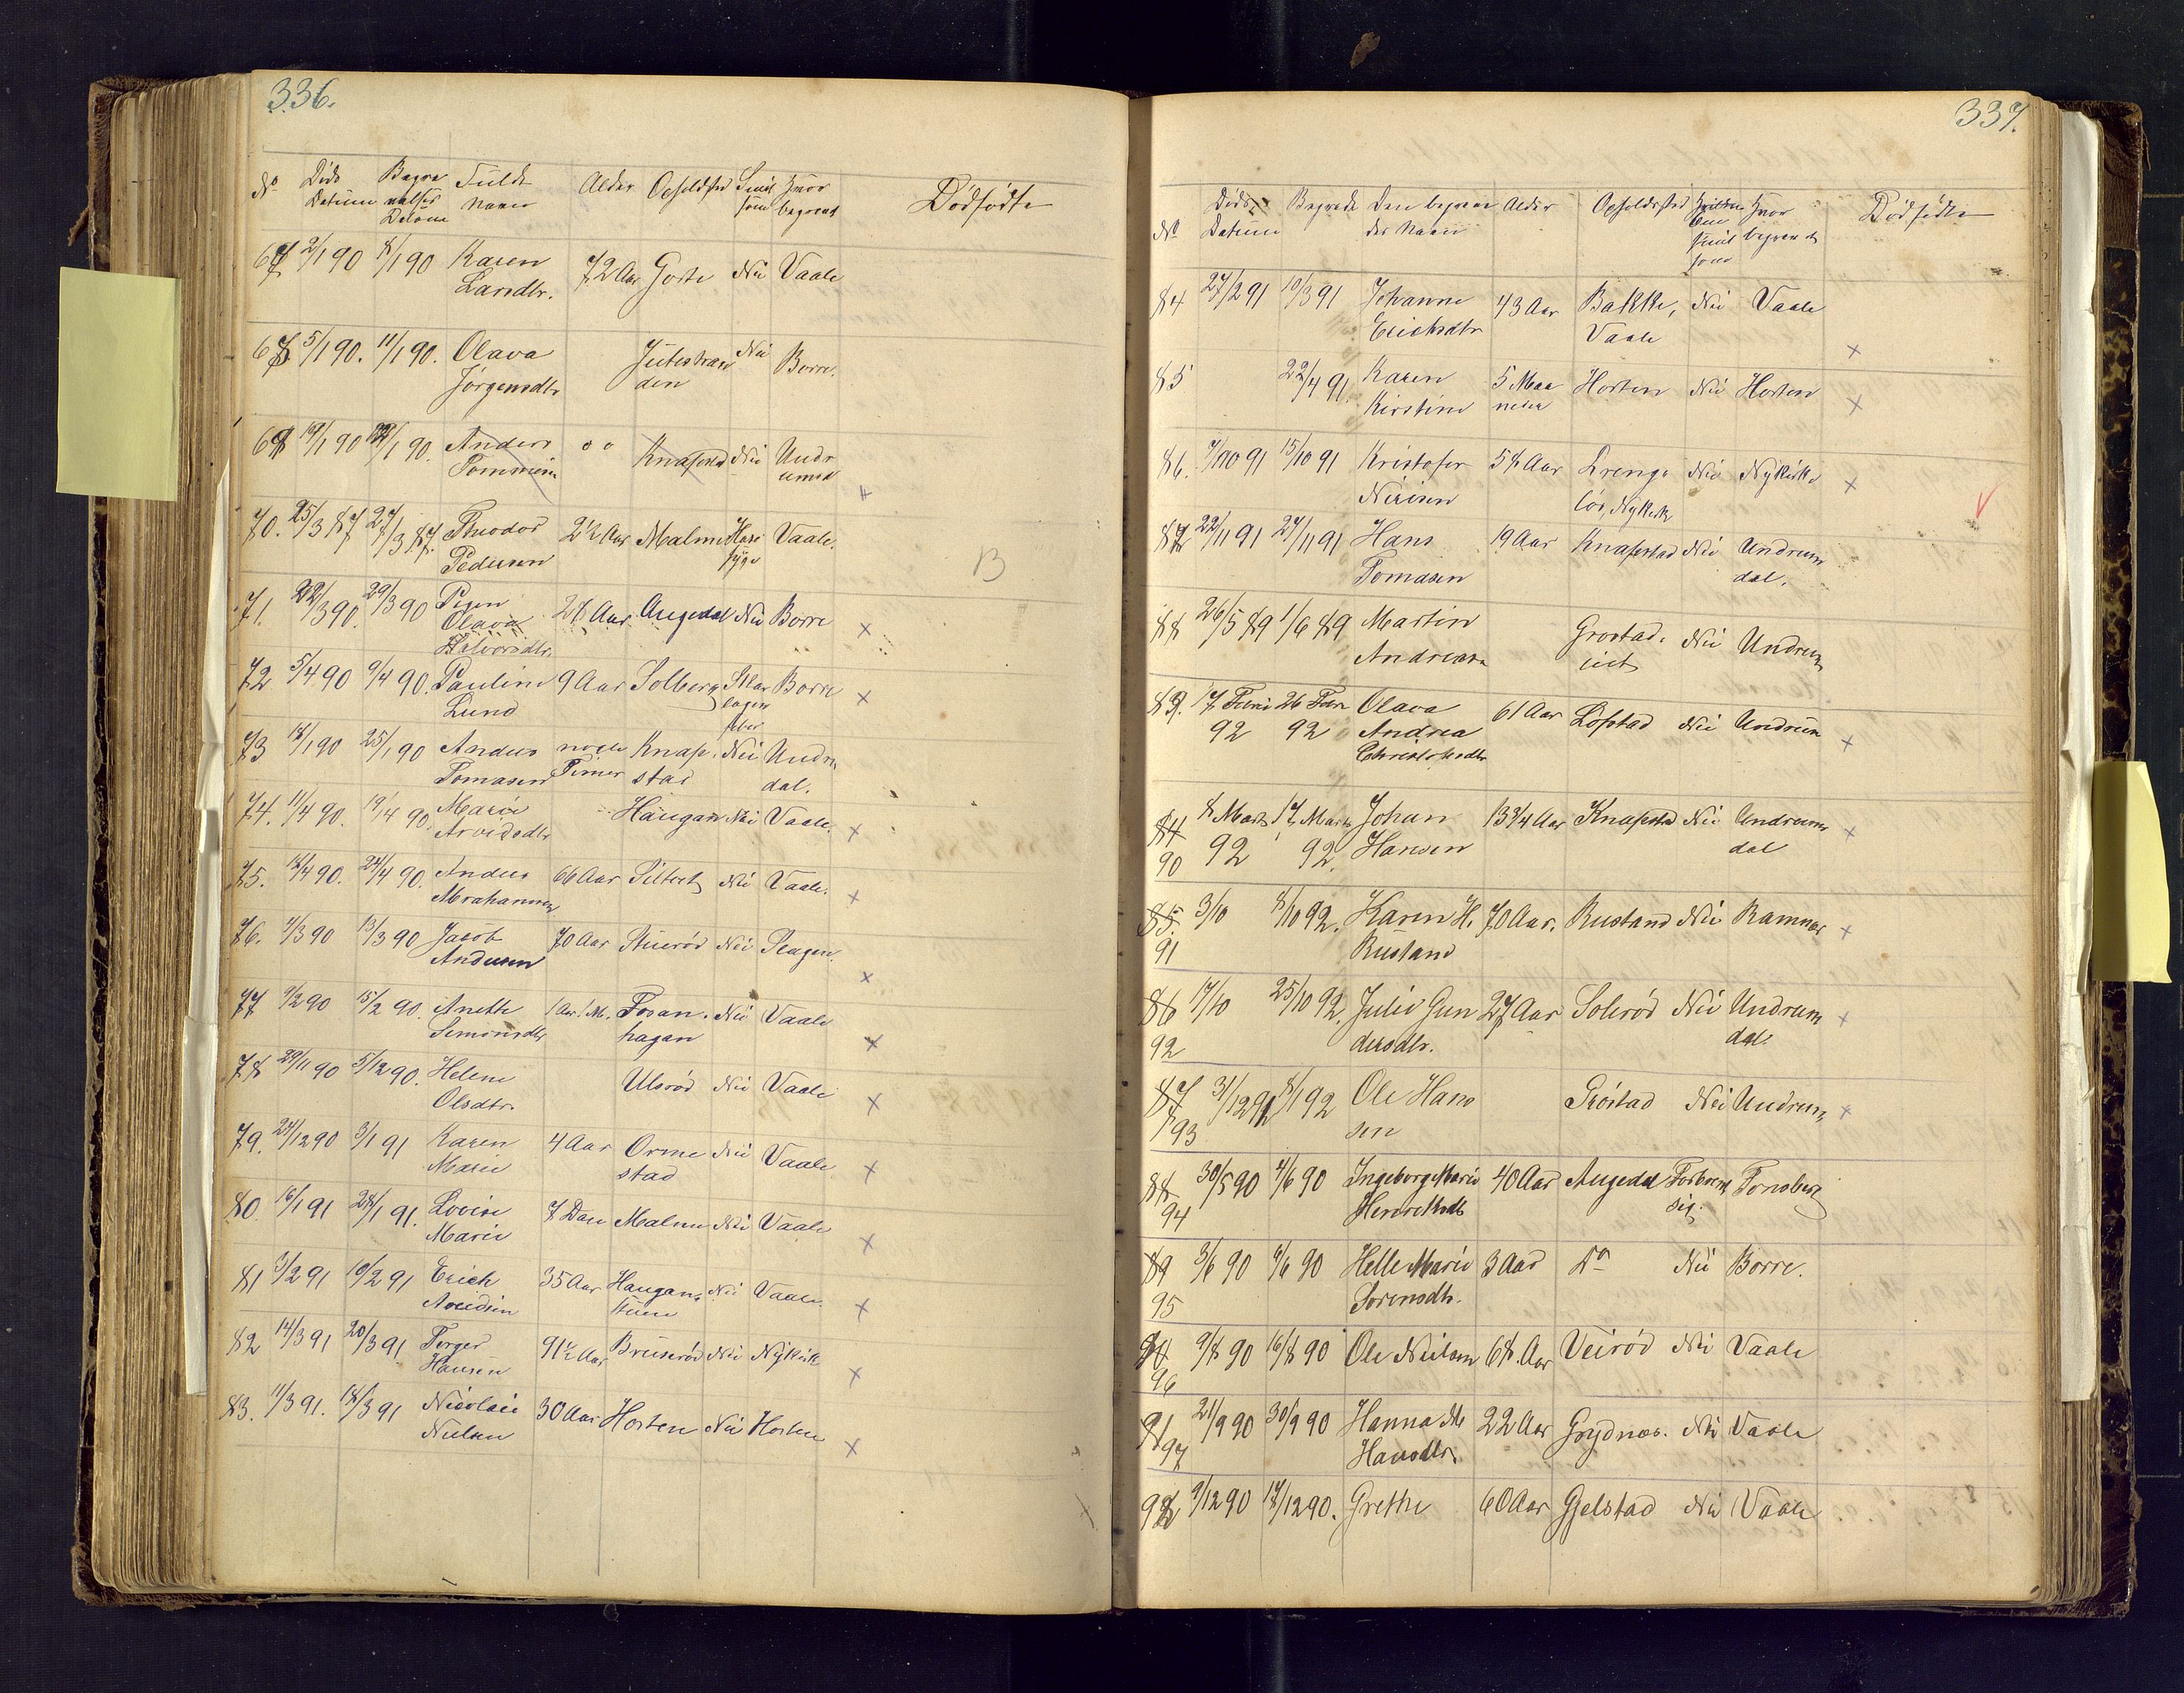 336.
No Døds Datum Begravelses Datum Fulde Navn Alder Opholdssted Smitsom Hvor begravet Dødfødte
67 2/1 90 8/1 90 Karen 72 Aar Goste Nei Vaale
Larsdtr.
68 5/1 90. 11/1 90. Olava Nei Borre.
Jørgensdtr den
69 19/1 90 /1 90. Anders " Knapstad Nei Undr
Tommesen umsd
70. 25/3 87 27/3 87. Theodor 2½ Aar Malme Hals Vaale.
Pedersen syge
B
71. 22/3 90. 29/3 90 Pigen 28 Aar Augedal Nei Borre x
Olava
Halvorsdtr.
72 5/4 90 9/4 90. Pauline 9 Aar Solberg Skar Borre x
Lund lagen
feber
73 18/1 90 25/1 90 Anders nogle Knap- Nei Undru
Tomasen Timer stad dal.
74. 11/4 90. 19/4 90. Marie Haugan Nei Vaale. x
Arvidsdtr
75. 18/4 90. 24/4 90. Anders 66 Aar Nei Vaale. x
Abrahamsen
76. 4/3 90 13/3 90 Jacob 70 Aar Nei x
Andersen
77 9/2 90 15/2 90. Anette 1 Aar 1 M. Fosan- Nei Vaale x
Simonsdtr hagan
78 29/11 90 5/12 90. Helene Ulsrød Nei Vaale x
Olsdtr.
79. 24/12 90 3/1 91 Karen 4 Aar Orme Nei Vaale x
Marie stad
80. 16/1 91 24/1 91. Lovise 7 Dage Malme Nei Vaale x
Marie
81 3/2 91 10/2 91 Erich 35 Aar Haugan, Nei Vaale. x
Arvidsen
82 14/3 91 20/3 91 Torger 91½ Aar Bruserød Nei Nykirk x
Hansen
83. 11/3 91. 18/3 91 Nicolai 30 Aar Horten Nei Horten x
Nielsen
337.
No Døds Datum Begravede Den begravedes Navn Alder Opholdssted Hvor begravet Dødfødte
84 27/2 91 10/3 91 Johanne 43 Aar Bakke, Nei Vaale x
Erichsdtr Vaale
85 22/4 91. Karen 5 Maa Horten Nei Horten x
Kirstine neder
86. 7/10 91 15/10 91 Kristofer 54 Aar Drengs Nei Nykirke x
Nielsen løs, Nykirk
87 22/11 91 27/11 91 Hans 19 Aar Knapstad Nei Undrum
Tomasen dal.
88 26/5 89 1/6 89 Martin Grostad- Nei Undrum
Andreasen eiet
89. 17 Febr 26 Febr Olava 61 Aar Løfstad Nei Undrum x
92 92 Andrea
Christofersdtr
84 8 Marts 17 Marts Johan 13¾ Aar Knapstad Nei Undrums x
90 92 92. Hansen dal
85. 3/10 8/10 92. Karen H. 70 Aar. Rustand Nei Ramnes x
91 Rustand
86 17/10 25/10 92. Julie Gun 27 Aar Solerød Nei Undrum x
92 dersdtr. dal.
87 31/12 92 8/1 92 Ole Hans Grøstad Nei Undrum, x
93 sen
88 30/5 90 4/6 90 Ingeborg Marie 40 Aar Augedal Forbrent Tønsberg
94 sig.
89 3/6 90 6/6 90 Helle Marie 3 Aar Do Nei Borre.
95 Sorensdtr.
90 9/8 90 16/8 90 Ole Neilsen 68. Aar Veirød Nei Vaale
96
91 21/9 90 30/9 90 Hanna Me 22 Aar Grydnes. Nei Vaale
97 Hansdtr.
98 9/12 90 17/12 90. Grethe 60 Aar Gjelstad Nei Vaale